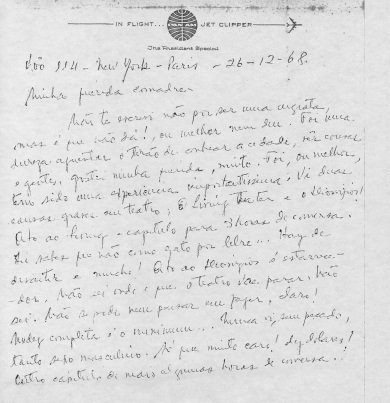 IN FLIGHT... PAN AM JET CLIPPER
The President Special
Vôo 114 - New York - Paris - 26-12-68.
Minha querida comadre
Não te escrevi não por ser uma ingrata,
mas é que não dá!, ou melhor nem deu. Foi uma
dureza aguentar o tirão de conhecer a cidade, ver coisas
e gentes, gostei minha querida, muito. Foi, ou melhor,
tem sido uma experiência importantíssima. Vi duas
coisas graves em teatro; O Living Theater e o Dionipos!
Qto ao Living - capítulo para 3 horas de conversa.
Tu sabes que não como gato por lebre... Hay de
discutir e mucho! Qto ao Dionipos é estarrece-
dor. Não sei onde é que o teatro vae parar. Não
sei. Não se pode nem pensar em fazer, claro!
Nudez completa é o minimum... Nunca vi, seu pecado,
tanto sexo masculino. Só que muito caro! dez dolares!
Outro capítulo de mais algumas horas de conversa...